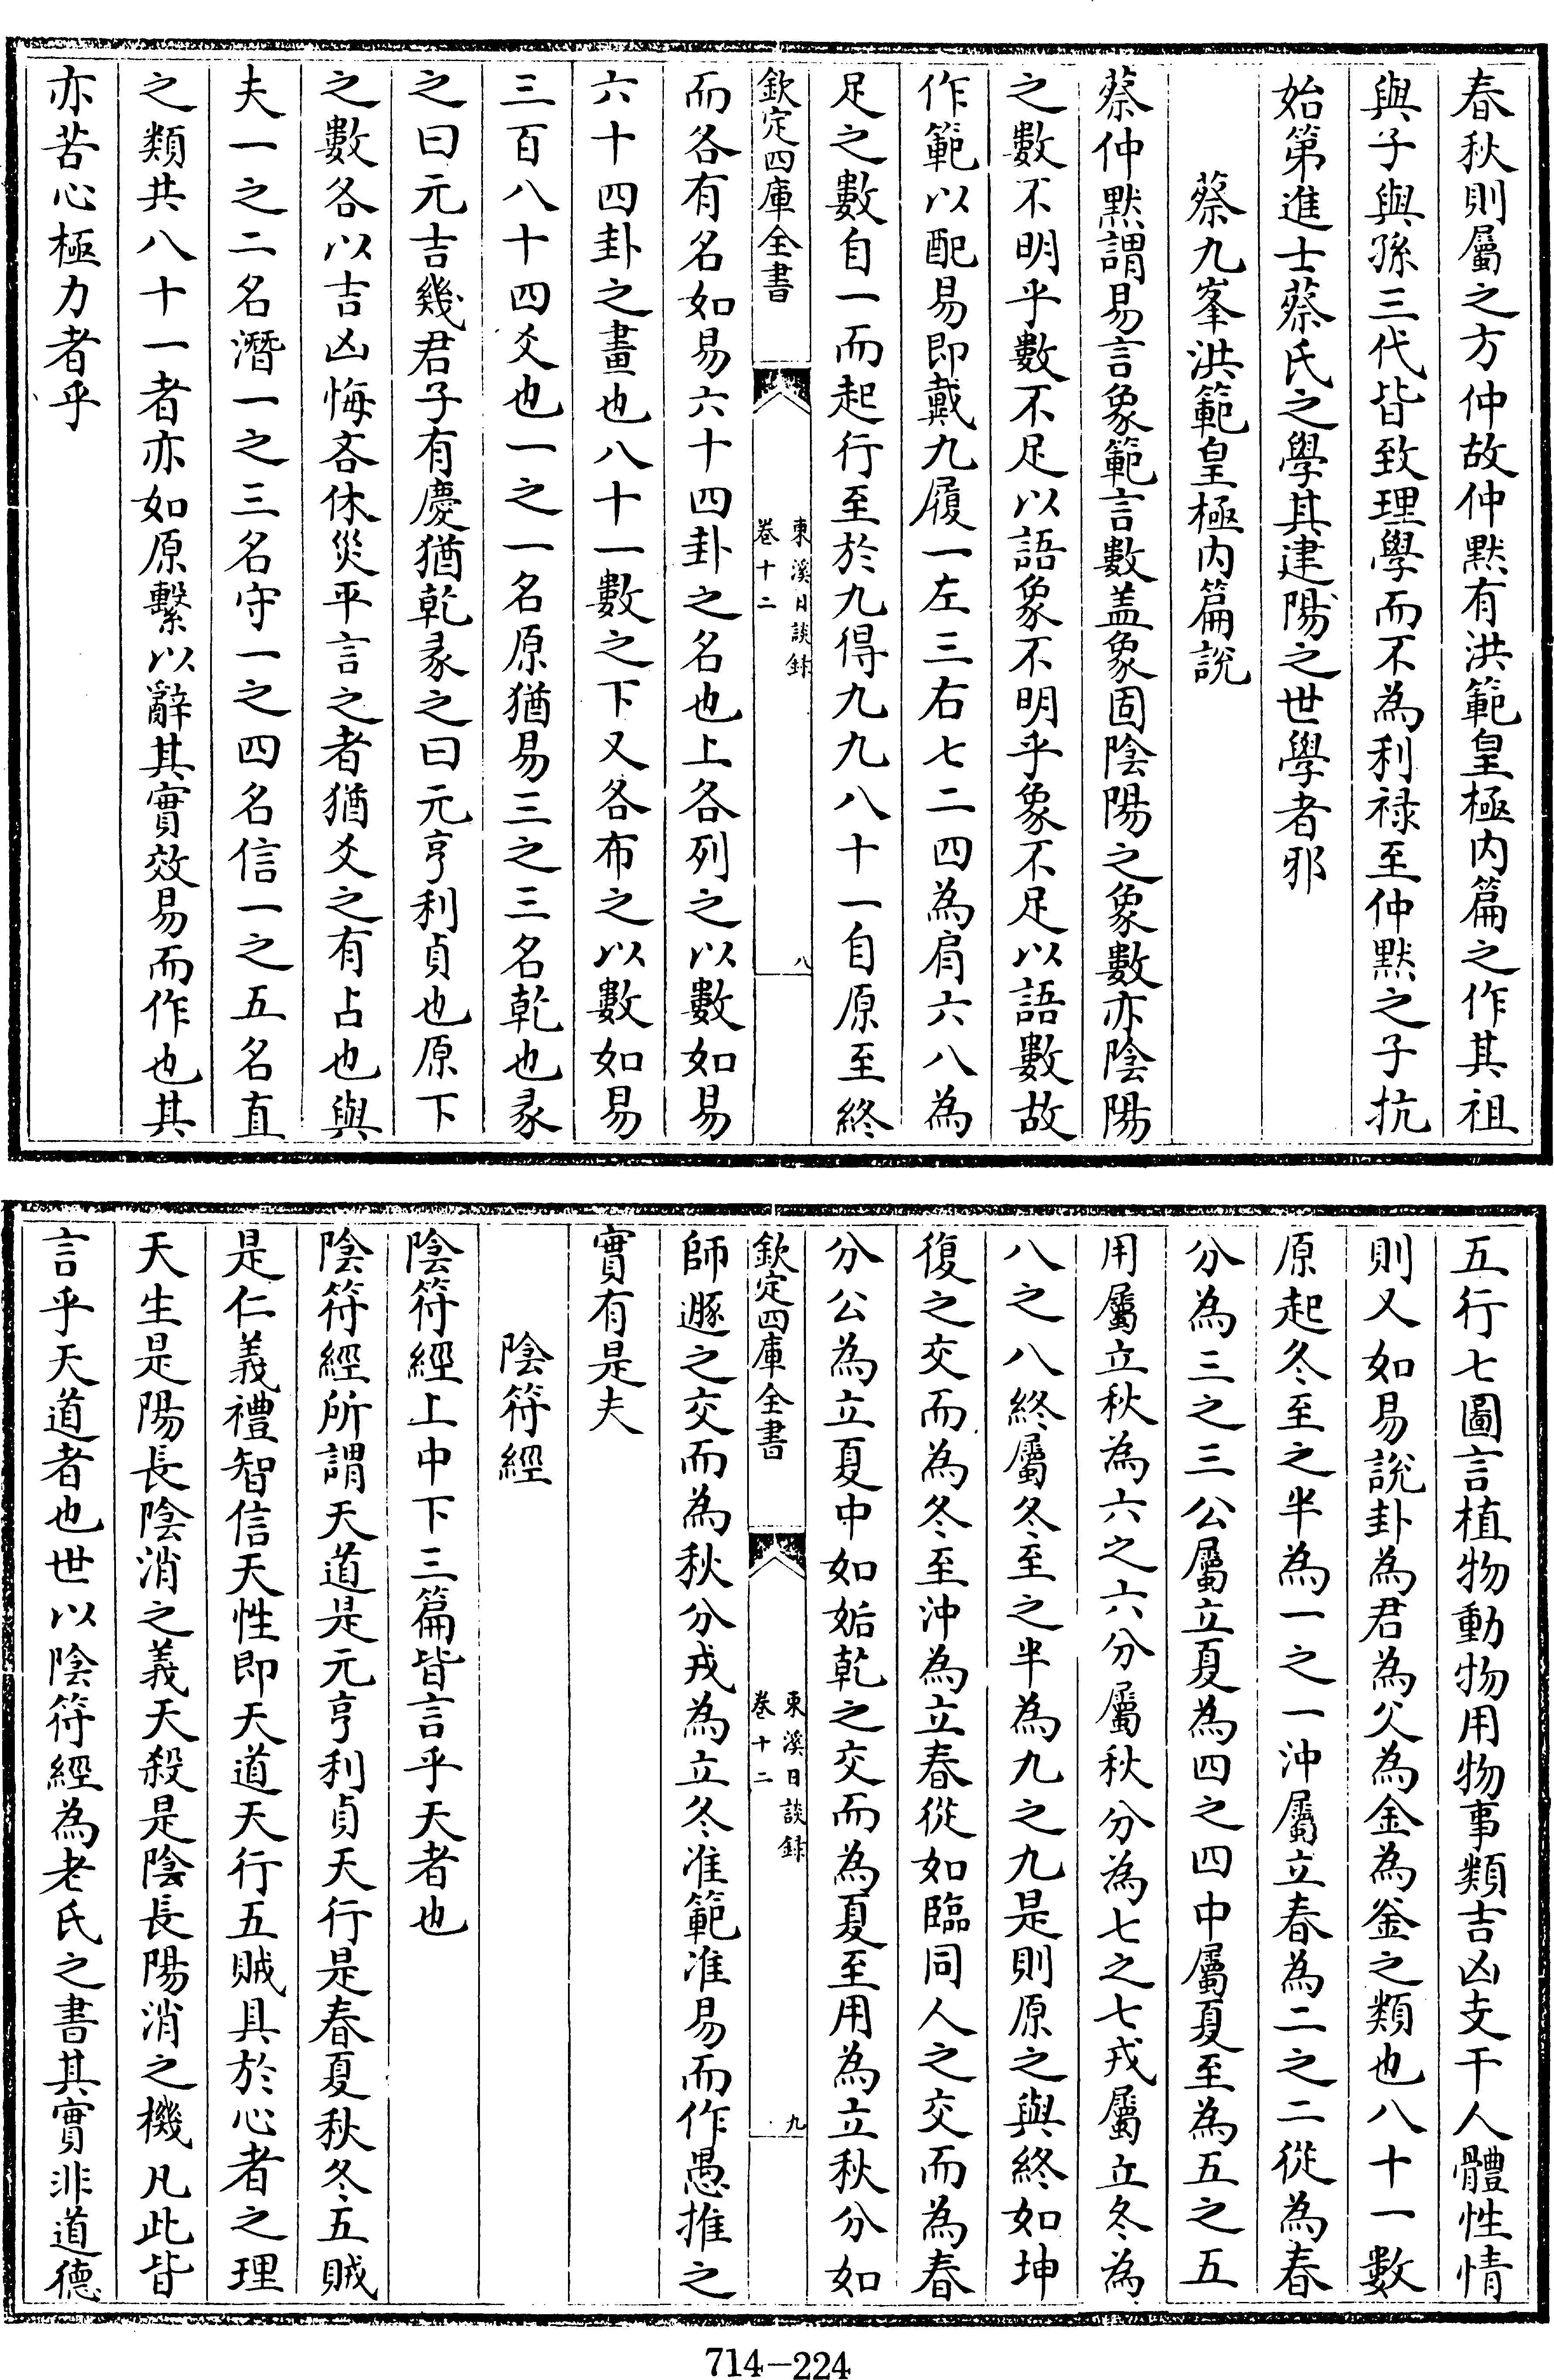 春秋則屬之方仲故仲黙有洪範皇極内篇之作其祖
與子與孫三代皆致理學而不為利禄至仲黙之子抗
始第進士蔡氏之學其建陽之世學者邪
蔡九峯洪範皇極内篇説
蔡仲黙謂易言象範言數盖象固陰陽之象數亦陰陽
之數不明乎數不足以語象不明乎象不足以語數故
作範以配易即戴九履一左三右七二四為肩六八為
足之數自一而起行至於九得九九八十一自原至終
欽定四庫全書
東溪日談録
卷十二
八
而各有名如易六十四卦之名也上各列之以數如易
六十四卦之畫也八十一數之下又各布之以數如易
三百八十四爻也一之一名原猶易三之三名乾也彖
之曰元吉幾君子有慶猶乾彖之曰元亨利貞也原下
之數各以吉凶悔吝休災平言之者猶爻之有占也與
夫一之二名潛一之三名守一之四名信一之五名直
之類共八十一者亦如原繫以辭其實效易而作也其
亦苦心極力者乎
五行七圖言植物動物用物事類吉凶支干人體性情
則又如易説卦為君為父為金為釜之類也八十一數
原起冬至之半為一之一沖屬立春為二之二從為春
分為三之三公屬立夏為四之四中屬夏至為五之五
用屬立秋為六之六分屬秋分為七之七戎屬立冬為
八之八終屬冬至之半為九之九是則原之與終如坤
復之交而為冬至沖為立春從如臨同人之交而為春
分公為立夏中如姤乾之交而為夏至用為立秋分如
欽定四庫全書
東溪日談録
卷十二
九
師遯之交而為秋分戎為立冬准範准易而作愚推之
實有是夫
陰符經
陰符經上中下三篇皆言乎天者也
陰符經所謂天道是元亨利貞天行是春夏秋冬五賊
是仁義禮智信天性即天道天行五賊具於心者之理
天生是陽長陰消之義天殺是陰長陽消之機凡此皆
言乎天道者也世以陰符經為老氏之書其實非道德
714-224